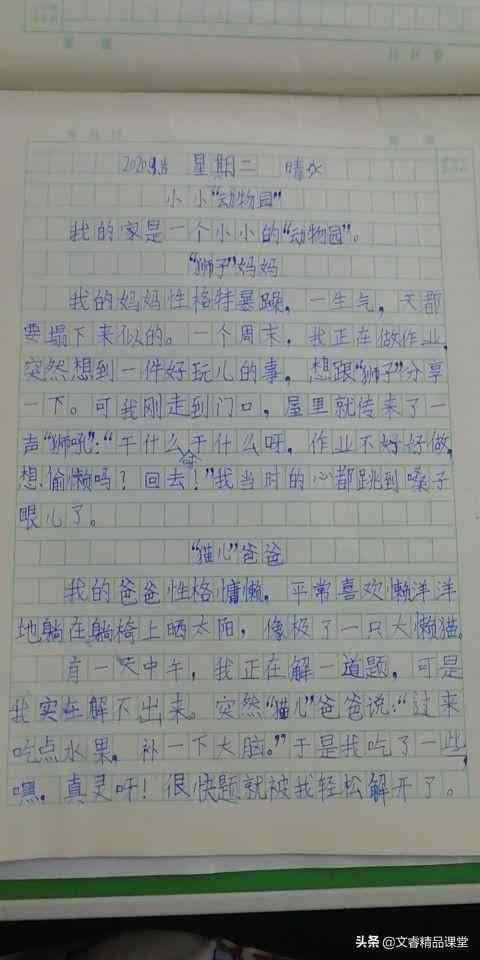 2020.9.8 星期二 晴
小小“动物园”
我的家是一个小小的“动物园”。
“狮子”妈妈
我的妈妈性格特暴躁，一生气，天都
要塌下来似的。一个周末，我正在做作业，
突然想到一件好玩儿的事，想跟“狮子”分享
一下。可我刚走到门口，屋里就传来了一
声“狮吼”：“干什么干什么呀，作业不好好做，
想偷懒吗？回去！”我当时的心都跳到嗓子
眼儿了。
“猫儿”爸爸
我的爸爸性格慵懒，平常喜欢懒洋洋
地躺在躺椅上晒太阳，像极了一只大懒猫。
有一天中午，我正在解一道题，可是
我实在解不出来。突然“猫儿”爸爸说：“过来
吃点水果，补一下大脑。”于是我吃了一些，
嘿，真灵呀！很快题就被我轻松解开了。
头条 @文睿精品课堂